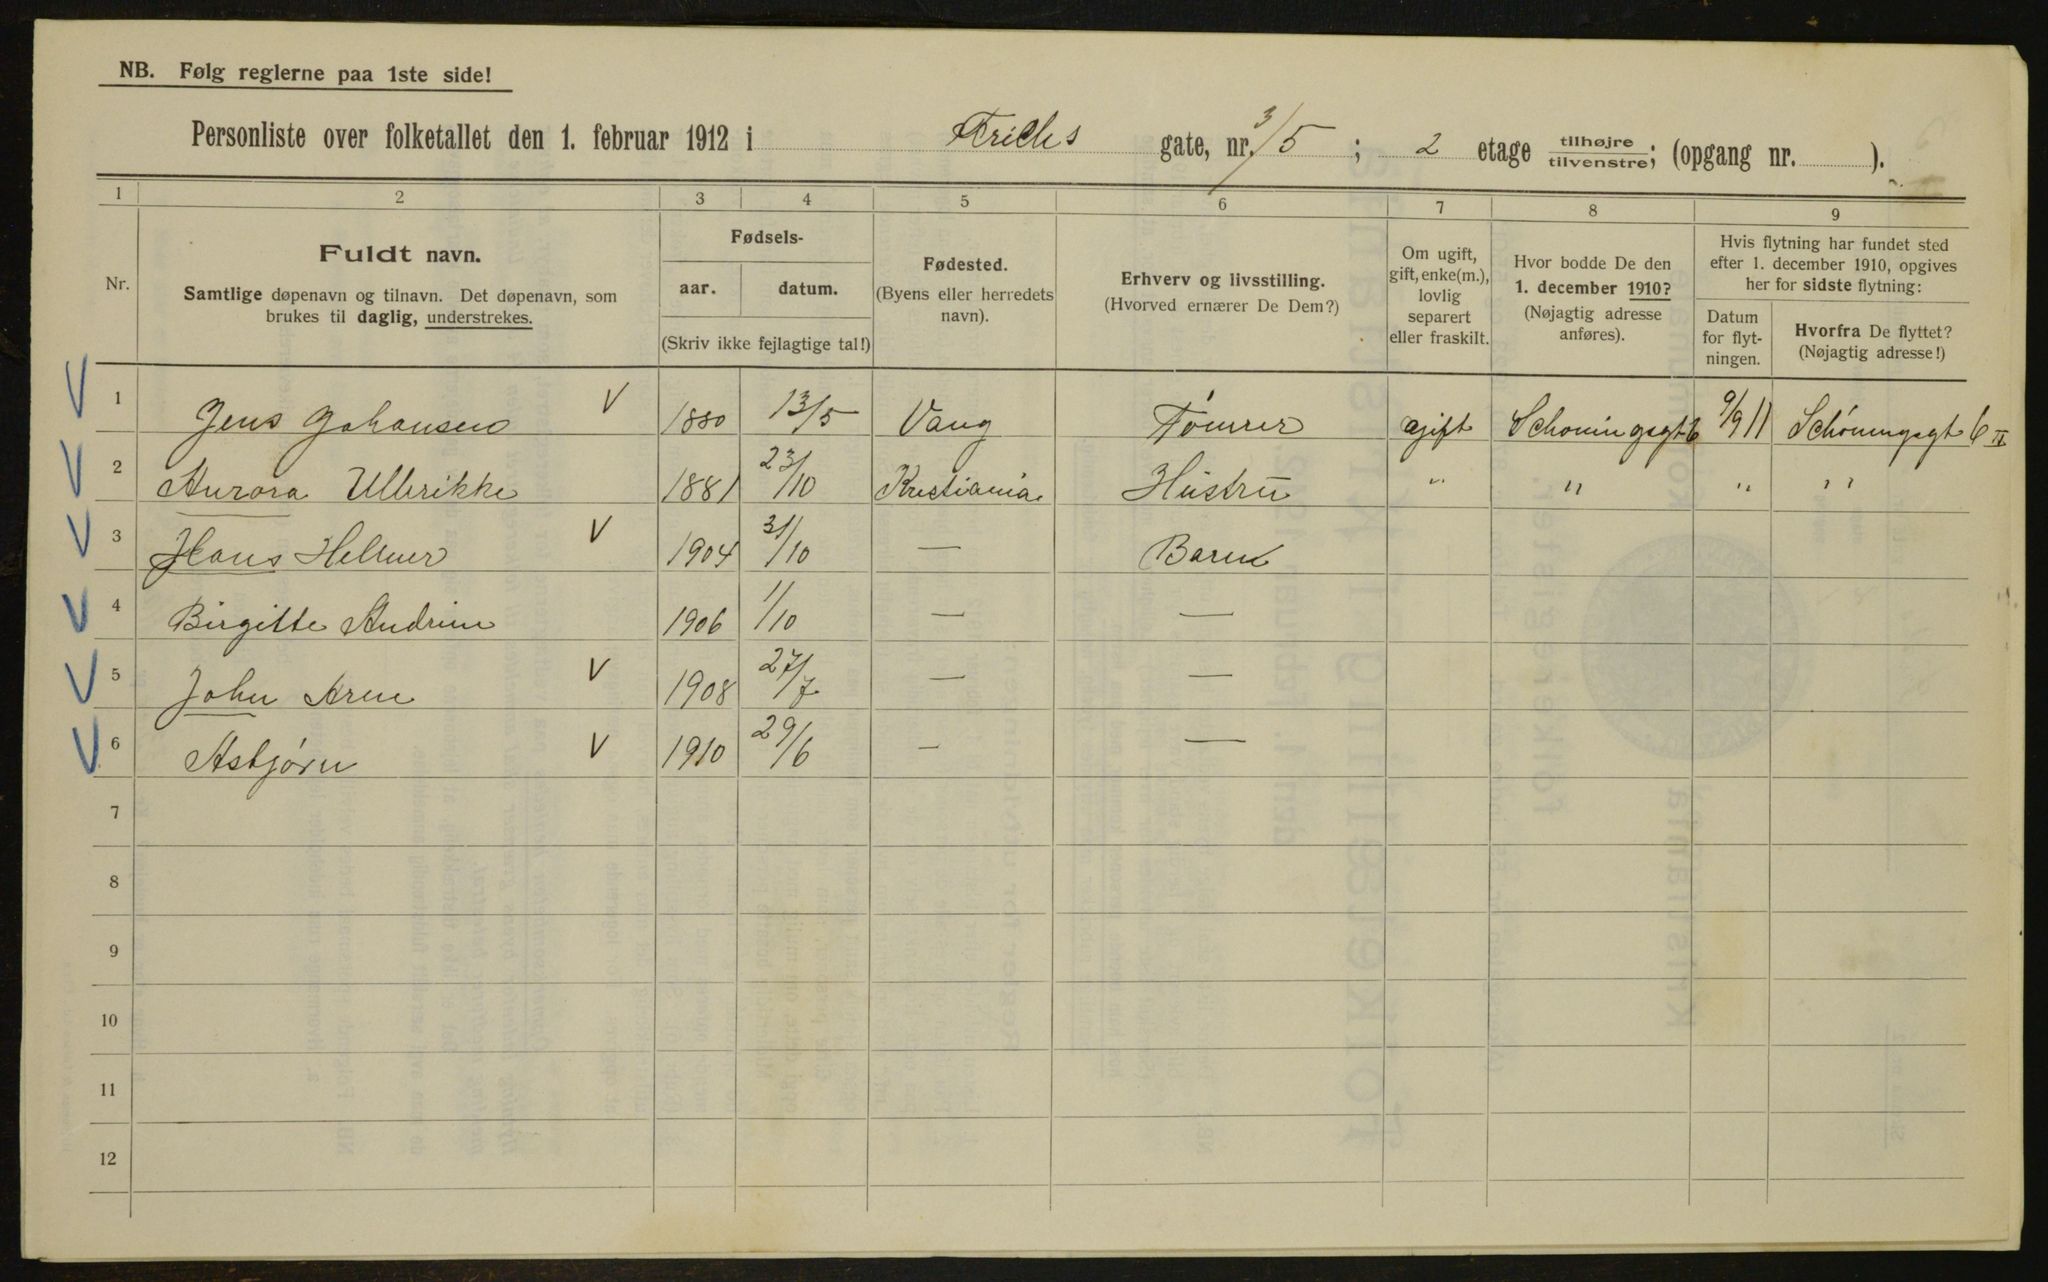 NB. Følg reglerne paa 1ste side!
Personliste over folketallet den 1. februar 1912 i Frichs gate, nr. 3/5; 2 etage tilhøjre/tilvenstre; (opgang nr. ).
1 2 3 4 5 6 7 8 9
Nr.
Fuldt navn.
Samtlige døpenavn og tilnavn. Det døpenavn, som
brukes til daglig, understrekes.
Fødsels-
aar. datum.
(Skriv ikke fejlagtige tal!)
Fødested.
(Byens eller herredets
navn).
Erhverv og livsstilling.
(Hvorved ernærer De Dem?)
Om ugift,
gift, enke(m.),
lovlig
separert
eller fraskilt.
Hvor bodde De den
1. december 1910?
(Nøjagtig adresse
anføres).
Hvis flytning har fundet sted
efter 1. december 1910, opgives
her for sidste flytning:
Datum
for flyt-
ningen.
Hvorfra De flyttet?
(Nøjagtig adresse!)
V 1 Jens Johansen V 1880 13/5 Vang Tömrer gift Schoningsgt 6 9/9 11 Schóningsgt 6 II
V 2 Aurora Ulbrikke 1881 23/10 Kristiania Hustru " " " "
V 3 Hans Helmer V 1904 31/10 — Barn
V 4 Birgitte Andrine 1906 1/10 — —
V 5 John Arne V 1908 27/7 — —
V 6 Asbjørn V 1910 29/6 — —
7
8
9
10
11
12